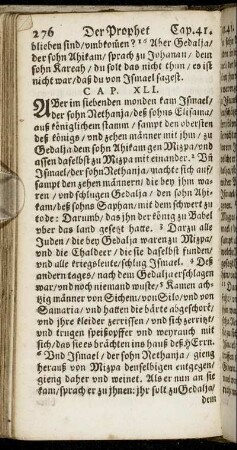 276 Der Prophet Cap.41.
blieben sind/ vmbkom̃en? ¹⁶ Aber Gedalja/
der sohn Ahikam/ sprach zu Johanan/ dem
sohn Kareah/ du solt das nicht thun/ es ist
nicht war/ daß du von Ismael sagest.
CAP. XLI.
ABer im siebenden monden kam Ismael/
der sohn Nethanja/ deß sohns Elisama/
aus königlichem stamm/ sampt den obersten
deß königs/ vnd zehen männer mit jhm/ zu
Gedalja dem sohn Ahikam gen Mizpa/ vnd
assen daselbst zu Mizpa mit einander. ² Vñ
Ismael/ der sohn Nethanja/ machte sich auf/
sampt den zehen männern/ die bey jhm wa-
ren/ vnd schlugen Gedalja/ den sohn Ahi-
kam/ deß sohns Saphan/ mit dem schwert zu
tode: Darumb/ das jhn der könig zu Babel
vber das land gesetzt hatte. ³ Darzu alle
Juden/ die bey Gedalja waren zu Mizpa/
vnd die Chaldeer/ die sie daselbst funden/
vnd alle kriegsleute/ schlug Ismael. ⁴ Des
andern tages/ nach dem Gedalja erschlagen
war/ vnd noch niemand wuste/ ⁵ Kamen ach-
tzig männer von Sichem/ von Silo/ vnd von
Samaria/ vnd hatten die bärte abgeschorē/
vnd jhre kleider zerrissen/ vnd sich zerritzt/
vnd trugen speißopffer vnd weyrauch mit
sich/ das sie es brächten ins hauß deß HErrn.
⁶ Vnd Ismael/ der sohn Nethanja/ gieng
herauß von Mizpa denselbigen entgegen/
gieng daher vnd weinet. Als er nun an sie
kam/ sprach er zu jhnen: jhr solt zu Gedalja
dem